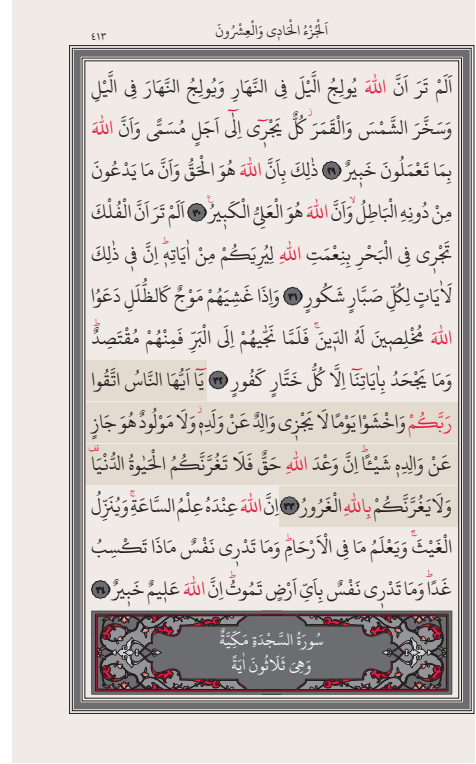 اَلْجُزْءُ الْحَادِى وَالْعِشْرُونَ
٤١٣
اَلَمْ تَرَ اَنَّ اللّٰهَ يُولِجُ الَّيْلَ فِى النَّهَارِ وَيُولِجُ النَّهَارَ فِى الَّيْلِ
وَسَخَّرَ الشَّمْسَ وَالْقَمَرَۘ كُلٌّ يَجْرٓى اِلٰٓى اَجَلٍ مُسَمًّى وَاَنَّ اللّٰهَ
بِمَا تَعْمَلُونَ خَبٖيرٌ ﴿٢٩﴾ ذٰلِكَ بِاَنَّ اللّٰهَ هُوَ الْحَقُّ وَاَنَّ مَا يَدْعُونَ
مِنْ دُونِهِ الْبَاطِلُۙ وَاَنَّ اللّٰهَ هُوَ الْعَلِىُّ الْكَبٖيرُࣖ ﴿٣٠﴾ اَلَمْ تَرَ اَنَّ الْفُلْكَ
تَجْرٖى فِى الْبَحْرِ بِنِعْمَتِ اللّٰهِ لِيُرِيَكُمْ مِنْ اٰيَاتِهٖؕ اِنَّ فٖى ذٰلِكَ
لَاٰيَاتٍ لِكُلِّ صَبَّارٍ شَكُورٍ ﴿٣١﴾ وَاِذَا غَشِيَهُمْ مَوْجٌ كَالظُّلَلِ دَعَوُا
اللّٰهَ مُخْلِصٖينَ لَهُ الدّٖينَۚ فَلَمَّا نَجّٰيهُمْ اِلَى الْبَرِّ فَمِنْهُمْ مُقْتَصِدٌؕ
وَمَا يَجْحَدُ بِاٰيَاتِنَٓا اِلَّا كُلُّ خَتَّارٍ كَفُورٍ ﴿٣٢﴾ يَٓا اَيُّهَا النَّاسُ اتَّقُوا
رَبَّكُمْ وَاخْشَوْا يَوْمًا لَا يَجْزٖى وَالِدٌ عَنْ وَلَدِهٖؗ وَلَا مَوْلُودٌ هُوَ جَازٍ
عَنْ وَالِدِهٖ شَيْـًٔاؕ اِنَّ وَعْدَ اللّٰهِ حَقٌّ فَلَا تَغُرَّنَّكُمُ الْحَيٰوةُ الدُّنْيَا۠
وَلَا يَغُرَّنَّكُمْ بِاللّٰهِ الْغَرُورُ ﴿٣٣﴾ اِنَّ اللّٰهَ عِنْدَهُ عِلْمُ السَّاعَةِۚ وَيُنَزِّلُ
الْغَيْثَۚ وَيَعْلَمُ مَا فِى الْاَرْحَامِؕ وَمَا تَدْرٖى نَفْسٌ مَاذَا تَكْسِبُ
غَدًاؕ وَمَا تَدْرٖى نَفْسٌ بِاَىِّ اَرْضٍ تَمُوتُؕ اِنَّ اللّٰهَ عَلٖيمٌ خَبٖيرٌ ﴿٣٤﴾
سُورَةُ السَّجْدَةِ مَكِّيَّةٌ
وَهِىَ ثَلَاثُونَ اٰيَةً